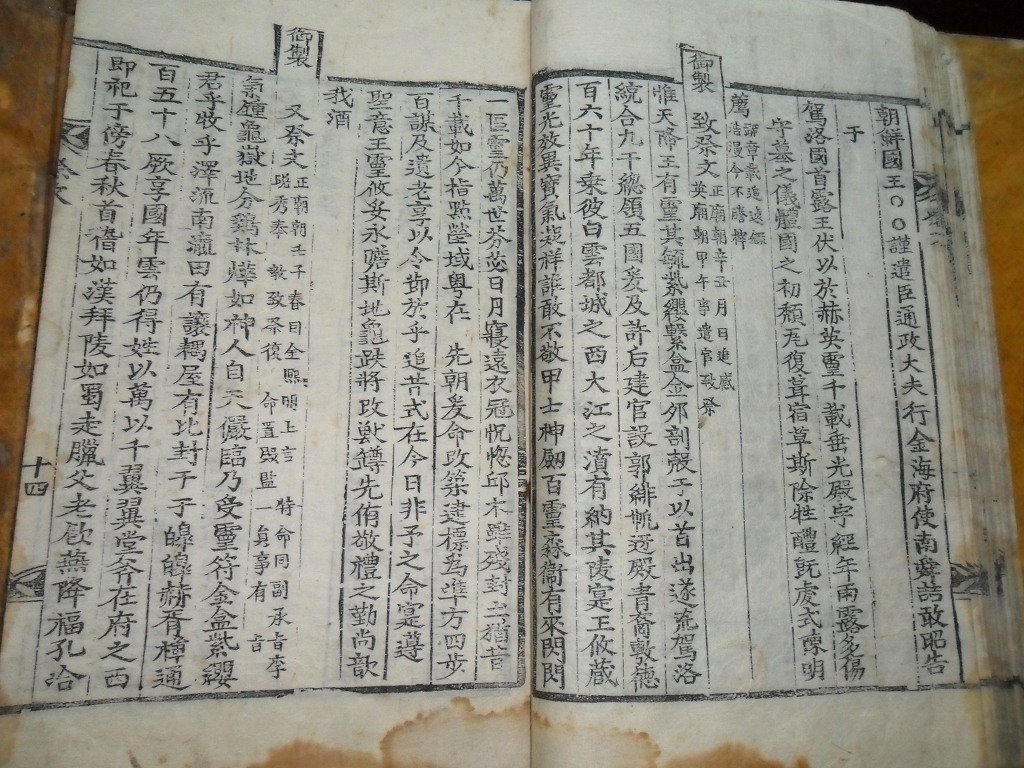 朝鮮國王○○謹遣臣通政大夫行金海府使南 誥敢昭告
于
駕洛國首露王伏以於赫英靈千載垂光殿宇經年雨露多傷
守墓之儀禮國之初頹瓦復葺宿草斯除牲醴旣虔式陳明
薦
御製
致祭文 正廟朝辛丑月日追感
英廟朝甲午事遣官致祭
惟天降王有靈其毓紫纓繫盒金卵剖殼于以首出遂荒駕洛
統合九干總領五國爰及許后建官設郭緋帆 殿靑裔敷德
百六十年乘彼白雲都城之西大江之濆有納其陵寔王攸藏
靈光效異寶氣 祥誰敢不敬甲士神劒百靈森衛有來閃閃
一區靈仍萬世芬苾日月寢遠衣冠怳惚邱木雖殘封 猶昔
千載如今指點塋域粤在 先朝爰命改築建標爲堆方四步
百謀及遺老享以今節於乎追昔式在今日非予之命寔遵
聖意王靈攸妥永贍斯地龜趺將改獸罇先侑敬禮之勤尚歆
我酒
御製
又祭文 正廟朝壬子 春因金熙明上言 特命同副承旨李
晩秀奉 敎致祭復 命置殿監一員事有 音
氣鍾龜嶽地分鷄林 如神人自天儼臨乃受靈符金盒紫纓
君乎牧乎澤流南瀛田有讓耦屋有比封千子 赫胥 通
百五十八厥享國年雲仍得姓以萬以千翼翼堂斧在府之西
即祀于傍春秋首稽如漢拜陵如蜀走臘父老飮燕降福孔洽
十四